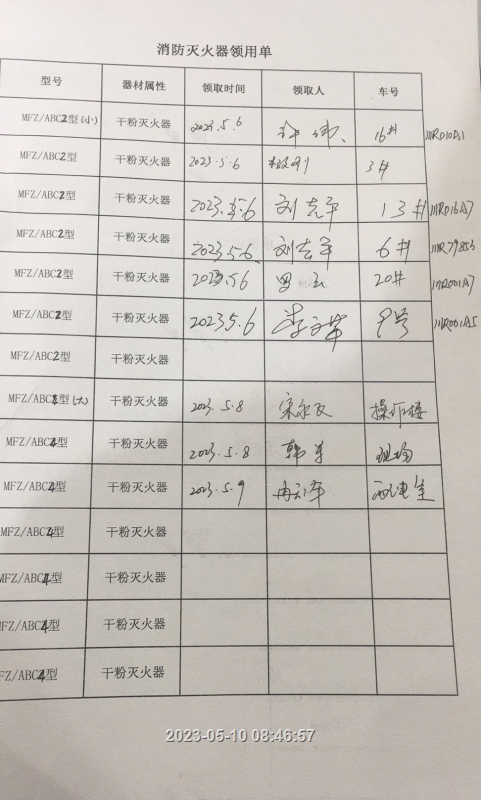 消防灭火器领用单
型号 器材属性 领取时间 领取人 车号
MFZ/ABC2型(小) 干粉灭火器 2023.5.6 16# MR010A1
MFZ/ABC2型 干粉灭火器 2023.5.6 3#
MFZ/ABC2型 干粉灭火器 2023.5.6 刘克军 13# MR016A7
MFZ/ABC2型 干粉灭火器 2023.5.6. 刘克军 6# MR79853
MFZ/ABC2型 干粉灭火器 2023.5.6 20# MR001A7
MFZ/ABC2型 干粉灭火器 2023 5.6 李文军 9号 MR001A5
MFZ/ABC2型 干粉灭火器
MFZ/ABC型(大) 干粉灭火器 2023. 5.8 宋永文 操作楼
MFZ/ABC4型 干粉灭火器 2023.5.8 韩军 现场
MFZ/ABC4型 干粉灭火器 2023.5.9 配电室
MFZ/ABC4型 干粉灭火器
MFZ/ABC4型 干粉灭火器
MFZ/ABC4型 干粉灭火器
FZ/ABC4型 干粉灭火器
2023-05-10 08:46:57